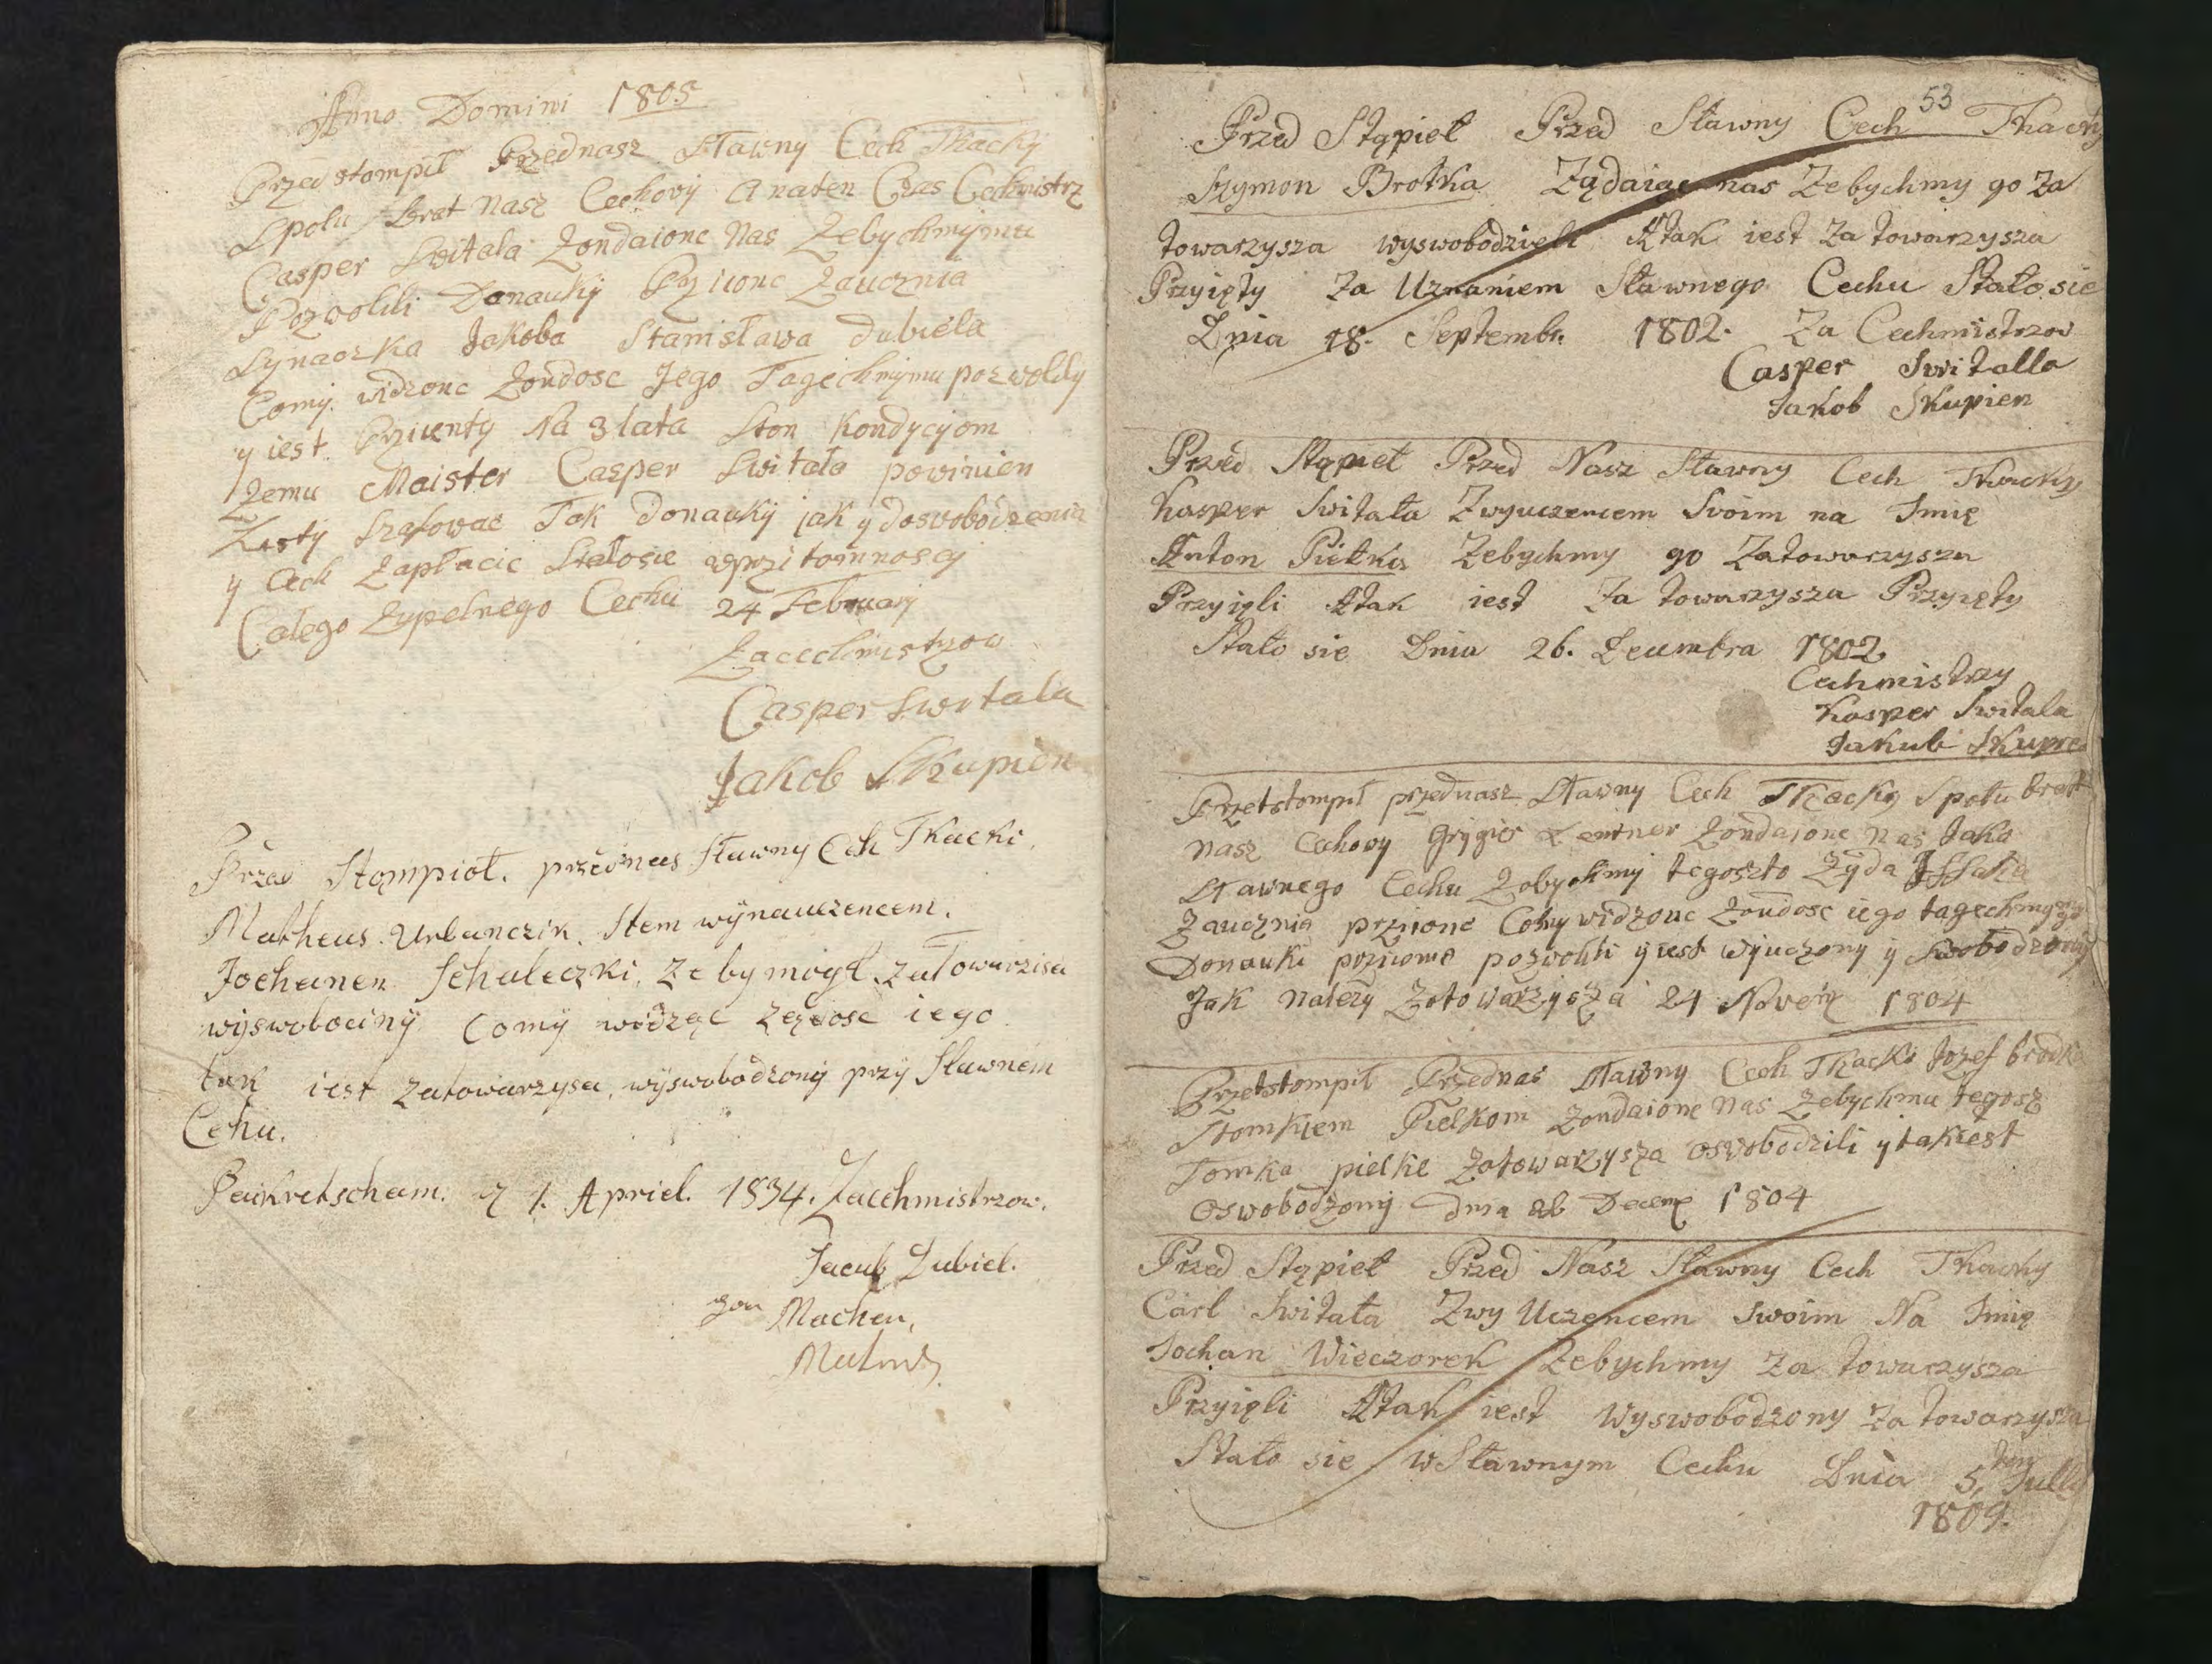 Anno Domini 1805
Przedstompił Przednasz Sławny Cech Tkacky
Spolu Brat Nasz Cechovy a naten Czas Cechmistrz
Casper Switala Zondaionc Nas Zebychmymu
Pozwolili Donauky Prziionc Zaucznia
Synaczka Jakoba Stanisława dubiela
Comy widzonc Zondosc Jego Tagechmymu pozwolily
y iest Prziienty Na 3 lata Ston Kondycyiom
Zemu Maister Casper Switała powinien
Szatowac Tak donauky jak y doswobodzenia
y Cech Zapłacic Stałosie wprzitomnoscy
Całego Zupelnego Cechu 24 February
Zacechmistrzow
Casper Switala
Jakob Skupien
Przed Stąmpioł. przednas Sławny Cech Tkacki.
Matheus Urbanczik. Stem wÿnauczencem.
Jochanen Schaleczki, Zeby mógł zatowarzisa
wÿswobociny Comÿ widząc Ządosc iego
tak iest zatowarzysa, wÿswobodzonÿ przÿ Sławnem
Cehu.
Peiskretscham. d 1. Apriel. 1834. Zacehmistrzow.
Jacub Dubiel.
Machen,
53
Przed Stąpieł Przed Sławny Cech Tkacky
Szymon Brotka Ządaiąc nas Zebychmy go Za
towarzysza wyswobodzieli Atak iest Za towarzysza
Przyięty Za Uznaniem Sławnego Cechu Stało sie
Dnia 18. Septembr. 1802. Za Cechmistrzow
Casper Switalla
Jakob Skupien
Przed Stąpieł Przed Nasz Sławny Cech Tkacky
Kasper Switała Zwyuczencem Svoim na Imię
Anton Pietka Zebychmy go Zatowarzysza
Przyięli Atak iest Za towarzysza Przyięty
Stało sie Dnia 26. Decembra 1802
Cechmistrzy
Kasper Switala
Jakub Skupie
Przetstompił przednasz Sławny Cech Tkacky Społu brat
nasz Cechovy Grÿgier Lentner Zondaionc nas Jako
Sławnego Cechu Zebychmy tegoszto Zÿda Issaka
Zaucznia prziionc Comy widzonc Zondosc iego tagechmygo
Donauki prziionc pozwolili y iest wÿuczony ÿ Swobodzony
Jak nalezy Zatowarzysza 24 Novem 1804
Przetstompił Przednas Sławny Cech Tkacki Jozef brodka
Stomkiem Pielkom Zondaionc nas Zebychmu tegosz
Tomka pielke Zatowarzysza osvobodzili y takiest
Oswobodzony dnia 26 Decem 1804
Przed Stąpieł Przed Nasz Sławny Cech Tkacky
Carl Switała Zwy Uczencem Swoim Na Imię
Jochan Wieczorek Zebychmy Za towarzysza
Przyięli Atak iest Wyswobodzony Za towarzysza
Stało sie w Sławnym Cechu Dnia 5, Julÿ
1809.